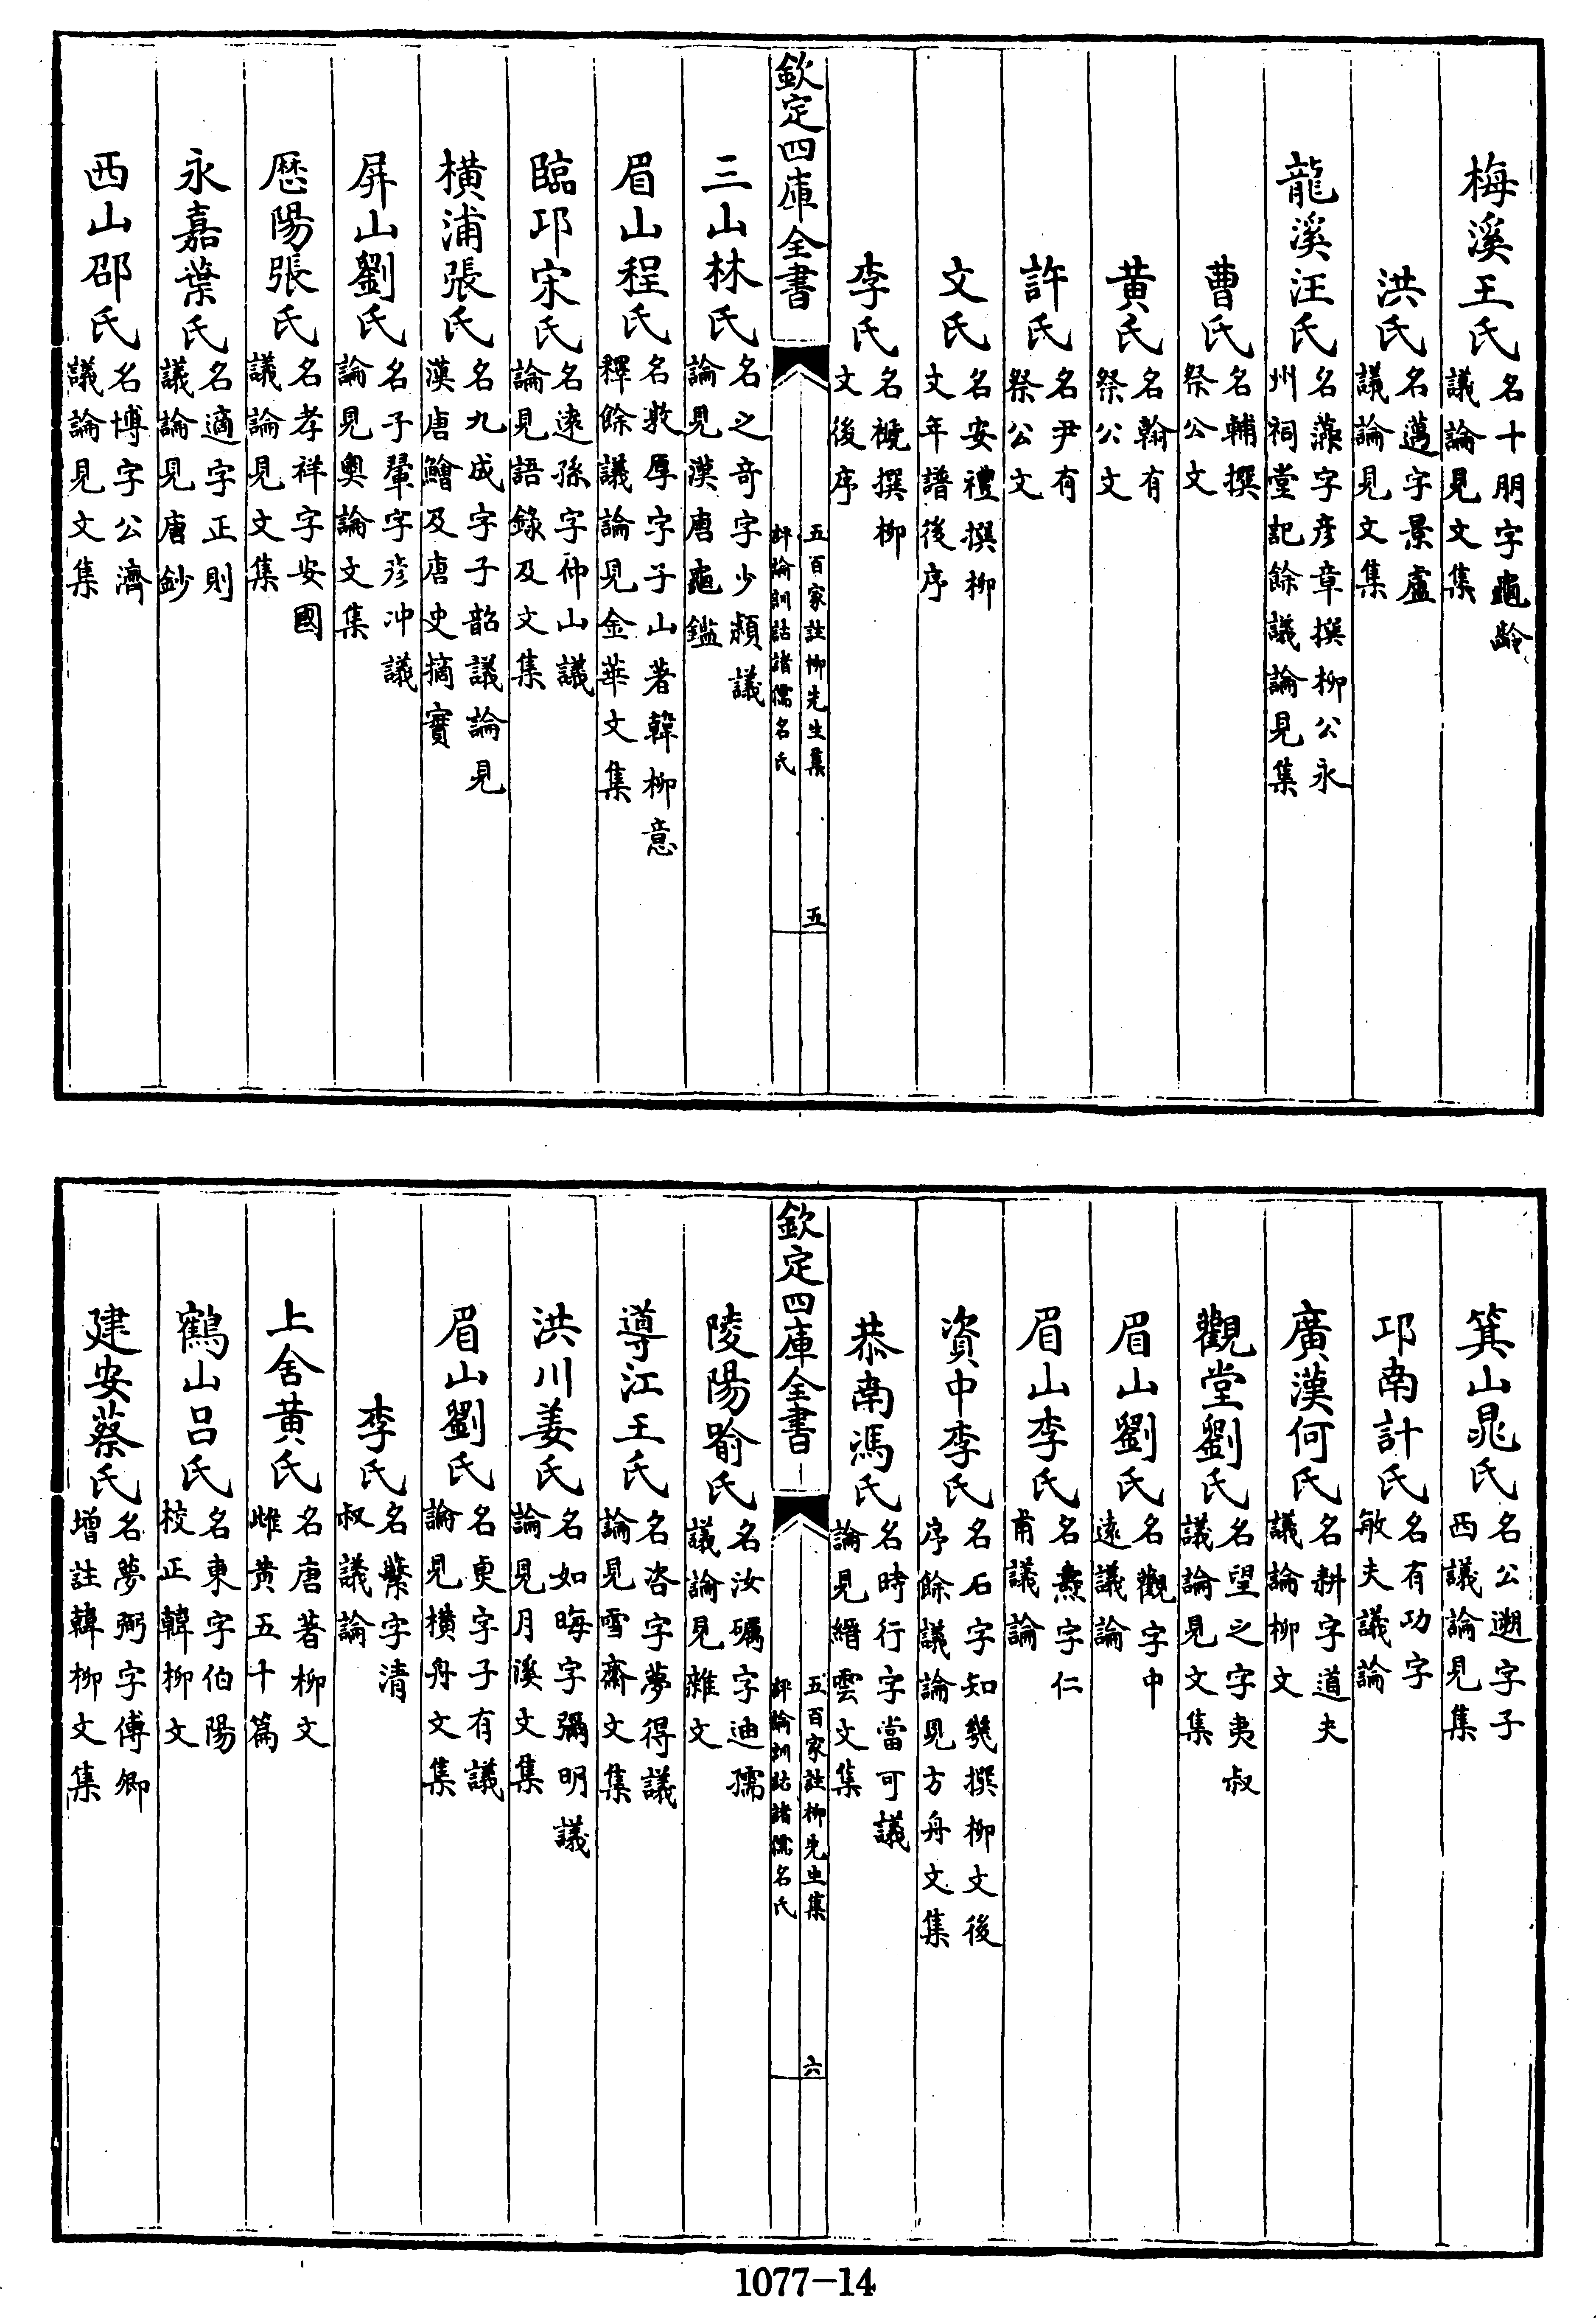 梅溪王氏名十朋字龜齡議論見文集
洪氏名邁字景盧議論見文集
龍溪汪氏名藻字彥章撰柳公永州祠堂記餘議論見集
曹氏名輔撰祭公文
黃氏名翰有祭公文
許氏名尹有祭公文
文氏名安禮撰柳文年譜後序
李氏名襯撰柳文後序
欽定四庫全書
五百家註柳先生集
評論訓詁諸儒名氏
五
三山林氏名之奇字少穎議論見漢唐龜鑑
眉山程氏名敦厚字子山著韓柳意釋餘議論見金華文集
臨邛宋氏名遠孫字仲山議論見語錄及文集
橫浦張氏名九成字子韶議論見漢唐鱠及唐史摘實
屏山劉氏名子翬字彥冲議論見奧論文集
歷陽張氏名孝祥字安國議論見文集
永嘉葉氏名適字正則議論見唐鈔
西山邵氏名博字公濟議論見文集
箕山晁氏名公遡字子西議論見集
邛南計氏名有功字敏夫議論
廣漢何氏名耕字道夫議論柳文
觀堂劉氏名望之字夷叔議論見文集
眉山劉氏名觀字中遠議論
眉山李氏名燾字仁甫議論
資中李氏名石字知幾撰柳文後序餘議論見方舟文集
恭南馮氏名時行字當可議論見縉雲文集
欽定四庫全書
五百家註柳先生集
評論訓詁諸儒名氏
六
陵陽喻氏名汝礪字迪孺議論見雜文
導江王氏名咨字夢得議論見雪齋文集
洪川姜氏名如晦字彌明議論見月溪文集
眉山劉氏名更字子有議論見橫舟文集
李氏名蘩字清叔議論
上舍黃氏名唐著柳文雌黃五十篇
鶴山呂氏名東字伯陽校正韓柳文
建安蔡氏名夢弼字傅卿增註韓柳文集
1077-14